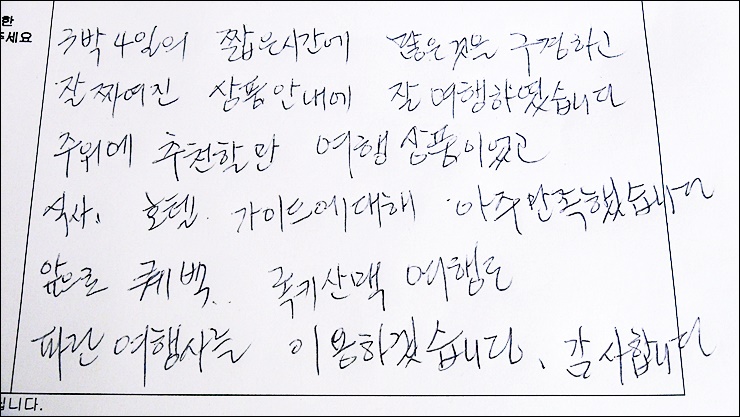 한
주세요
3박 4일의 짧은시간에 많은것을 구경하고
잘 짜여진 상품안내에 잘 여행하였습니다
주위에 추천할만 여행상품이였고
식사, 호텔, 가이드에대해 아주만족했습니다
앞으로 퀘백.. 록키산맥 여행도
파란여행사를 이용하겠습니다, 감사합니다
됩니다.